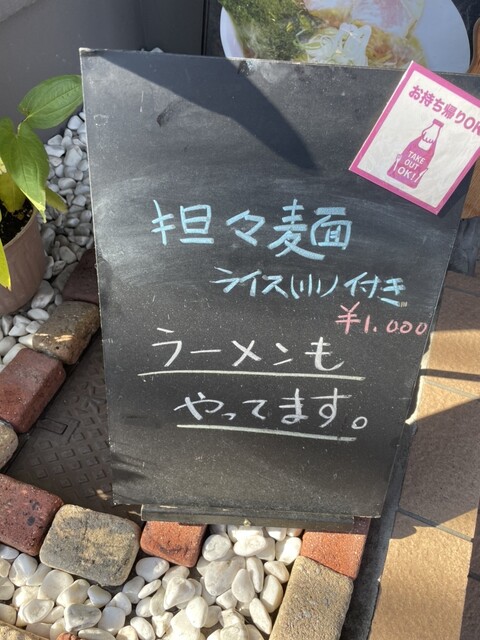 お持ち帰りOK
TAKE
OUT
OK!
担々麺
ライス(小)付き
¥1.000
ラーメンも
やってます。